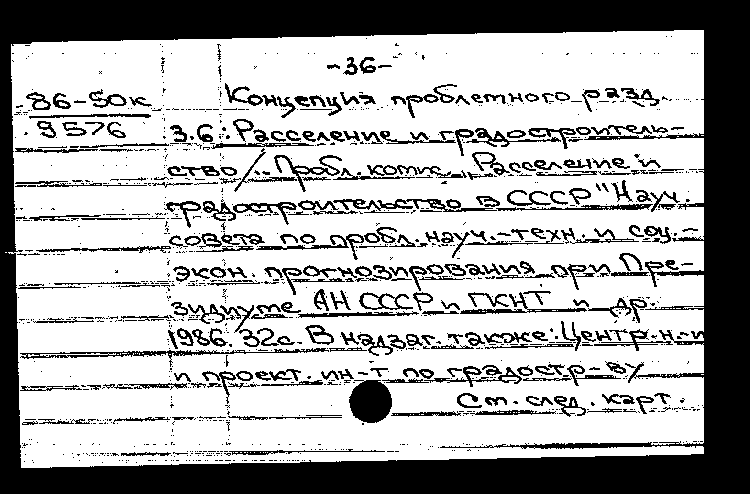 -36-
86-50к Концепция проблемного разд.
9576 3.6.: Расселение и градостроитель-
ство / .. Пробл. комис. "Расселение и
градостроительство в СССР" Науч.
совета по пробл. науч.-техн. и соц.-
экон. прогнозирования при Пре-
зидиуме АН СССР и ГКНТ и др.
1986. 32с. В надзаг. также: Центр. н.-и
и проект. ин-т по градостр-ву
См. след. карт.